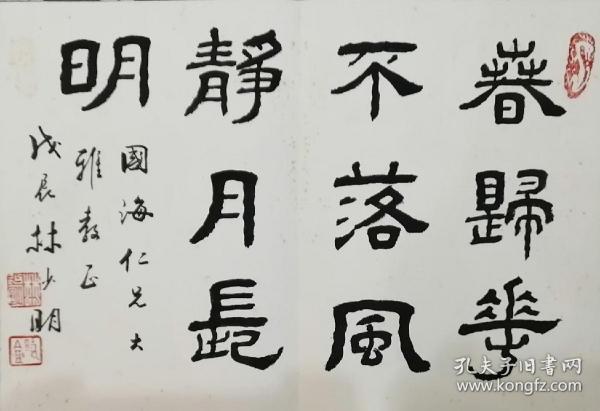 春歸華
不落風
靜月長
明
國海仁兄大
雅教正
戊辰 林少明
孔夫子旧书网
www.kongfz.com